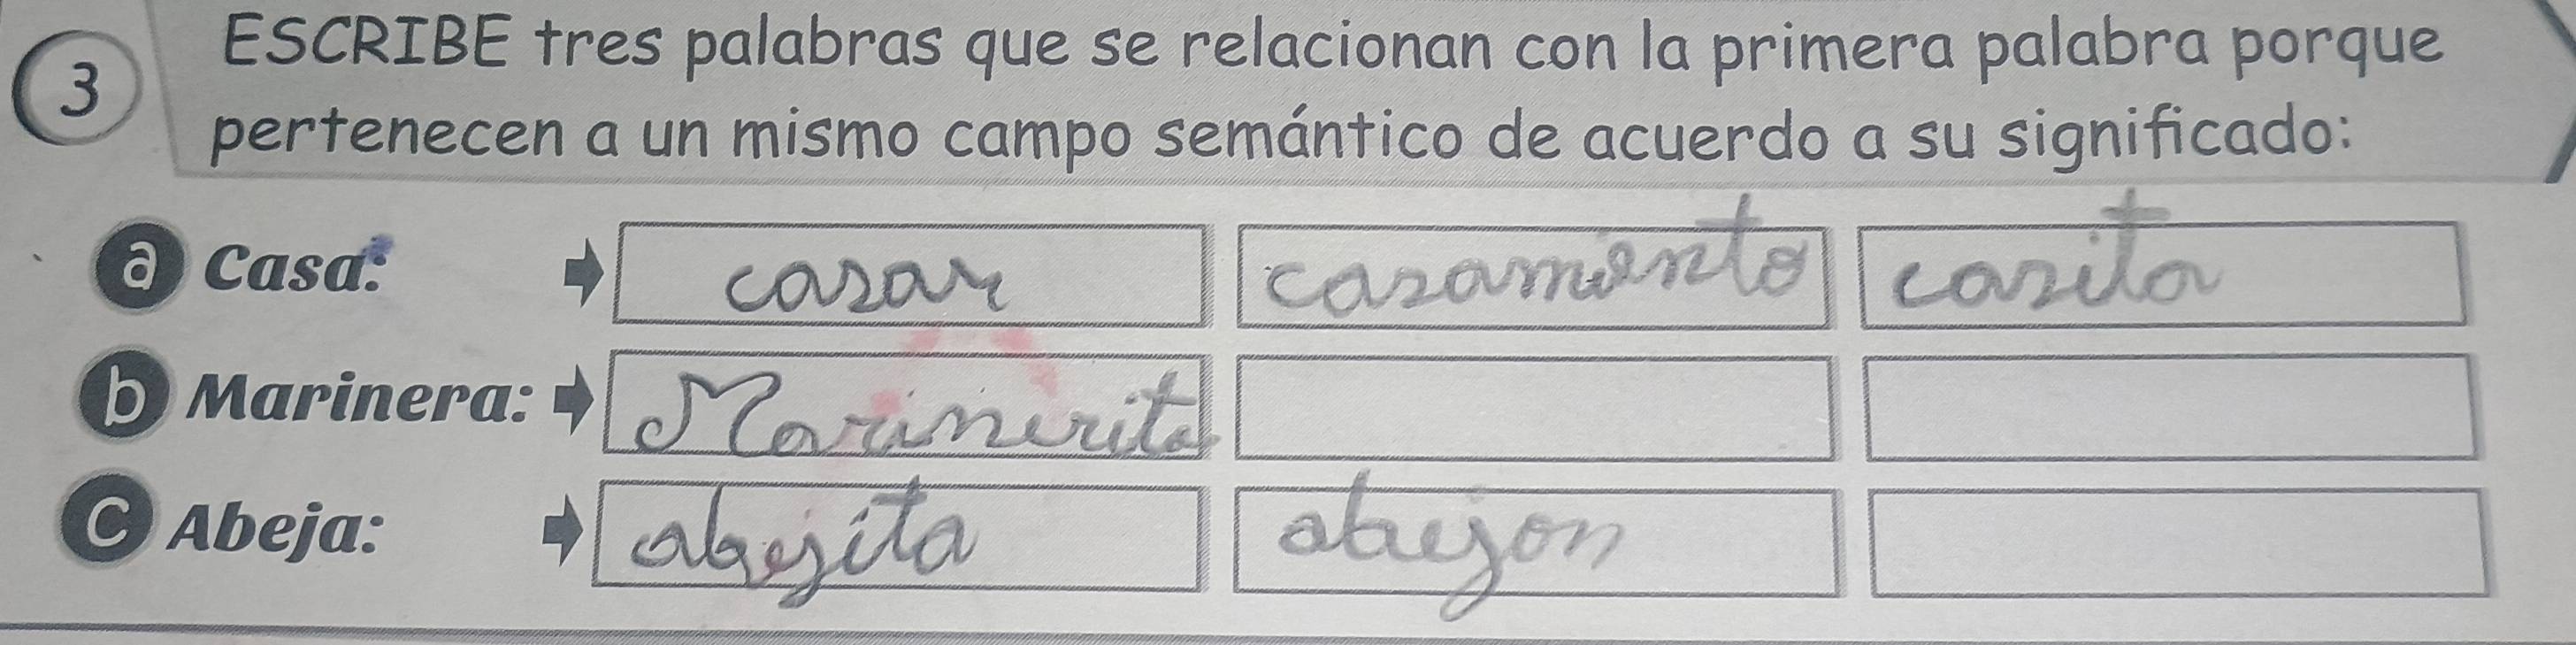 3
ESCRIBE tres palabras que se relacionan con la primera palabra porque
pertenecen a un mismo campo semántico de acuerdo a su significado:
a Casa: casar casamento casita
b Marinera: Marinerita
c Abeja: abejita abejon